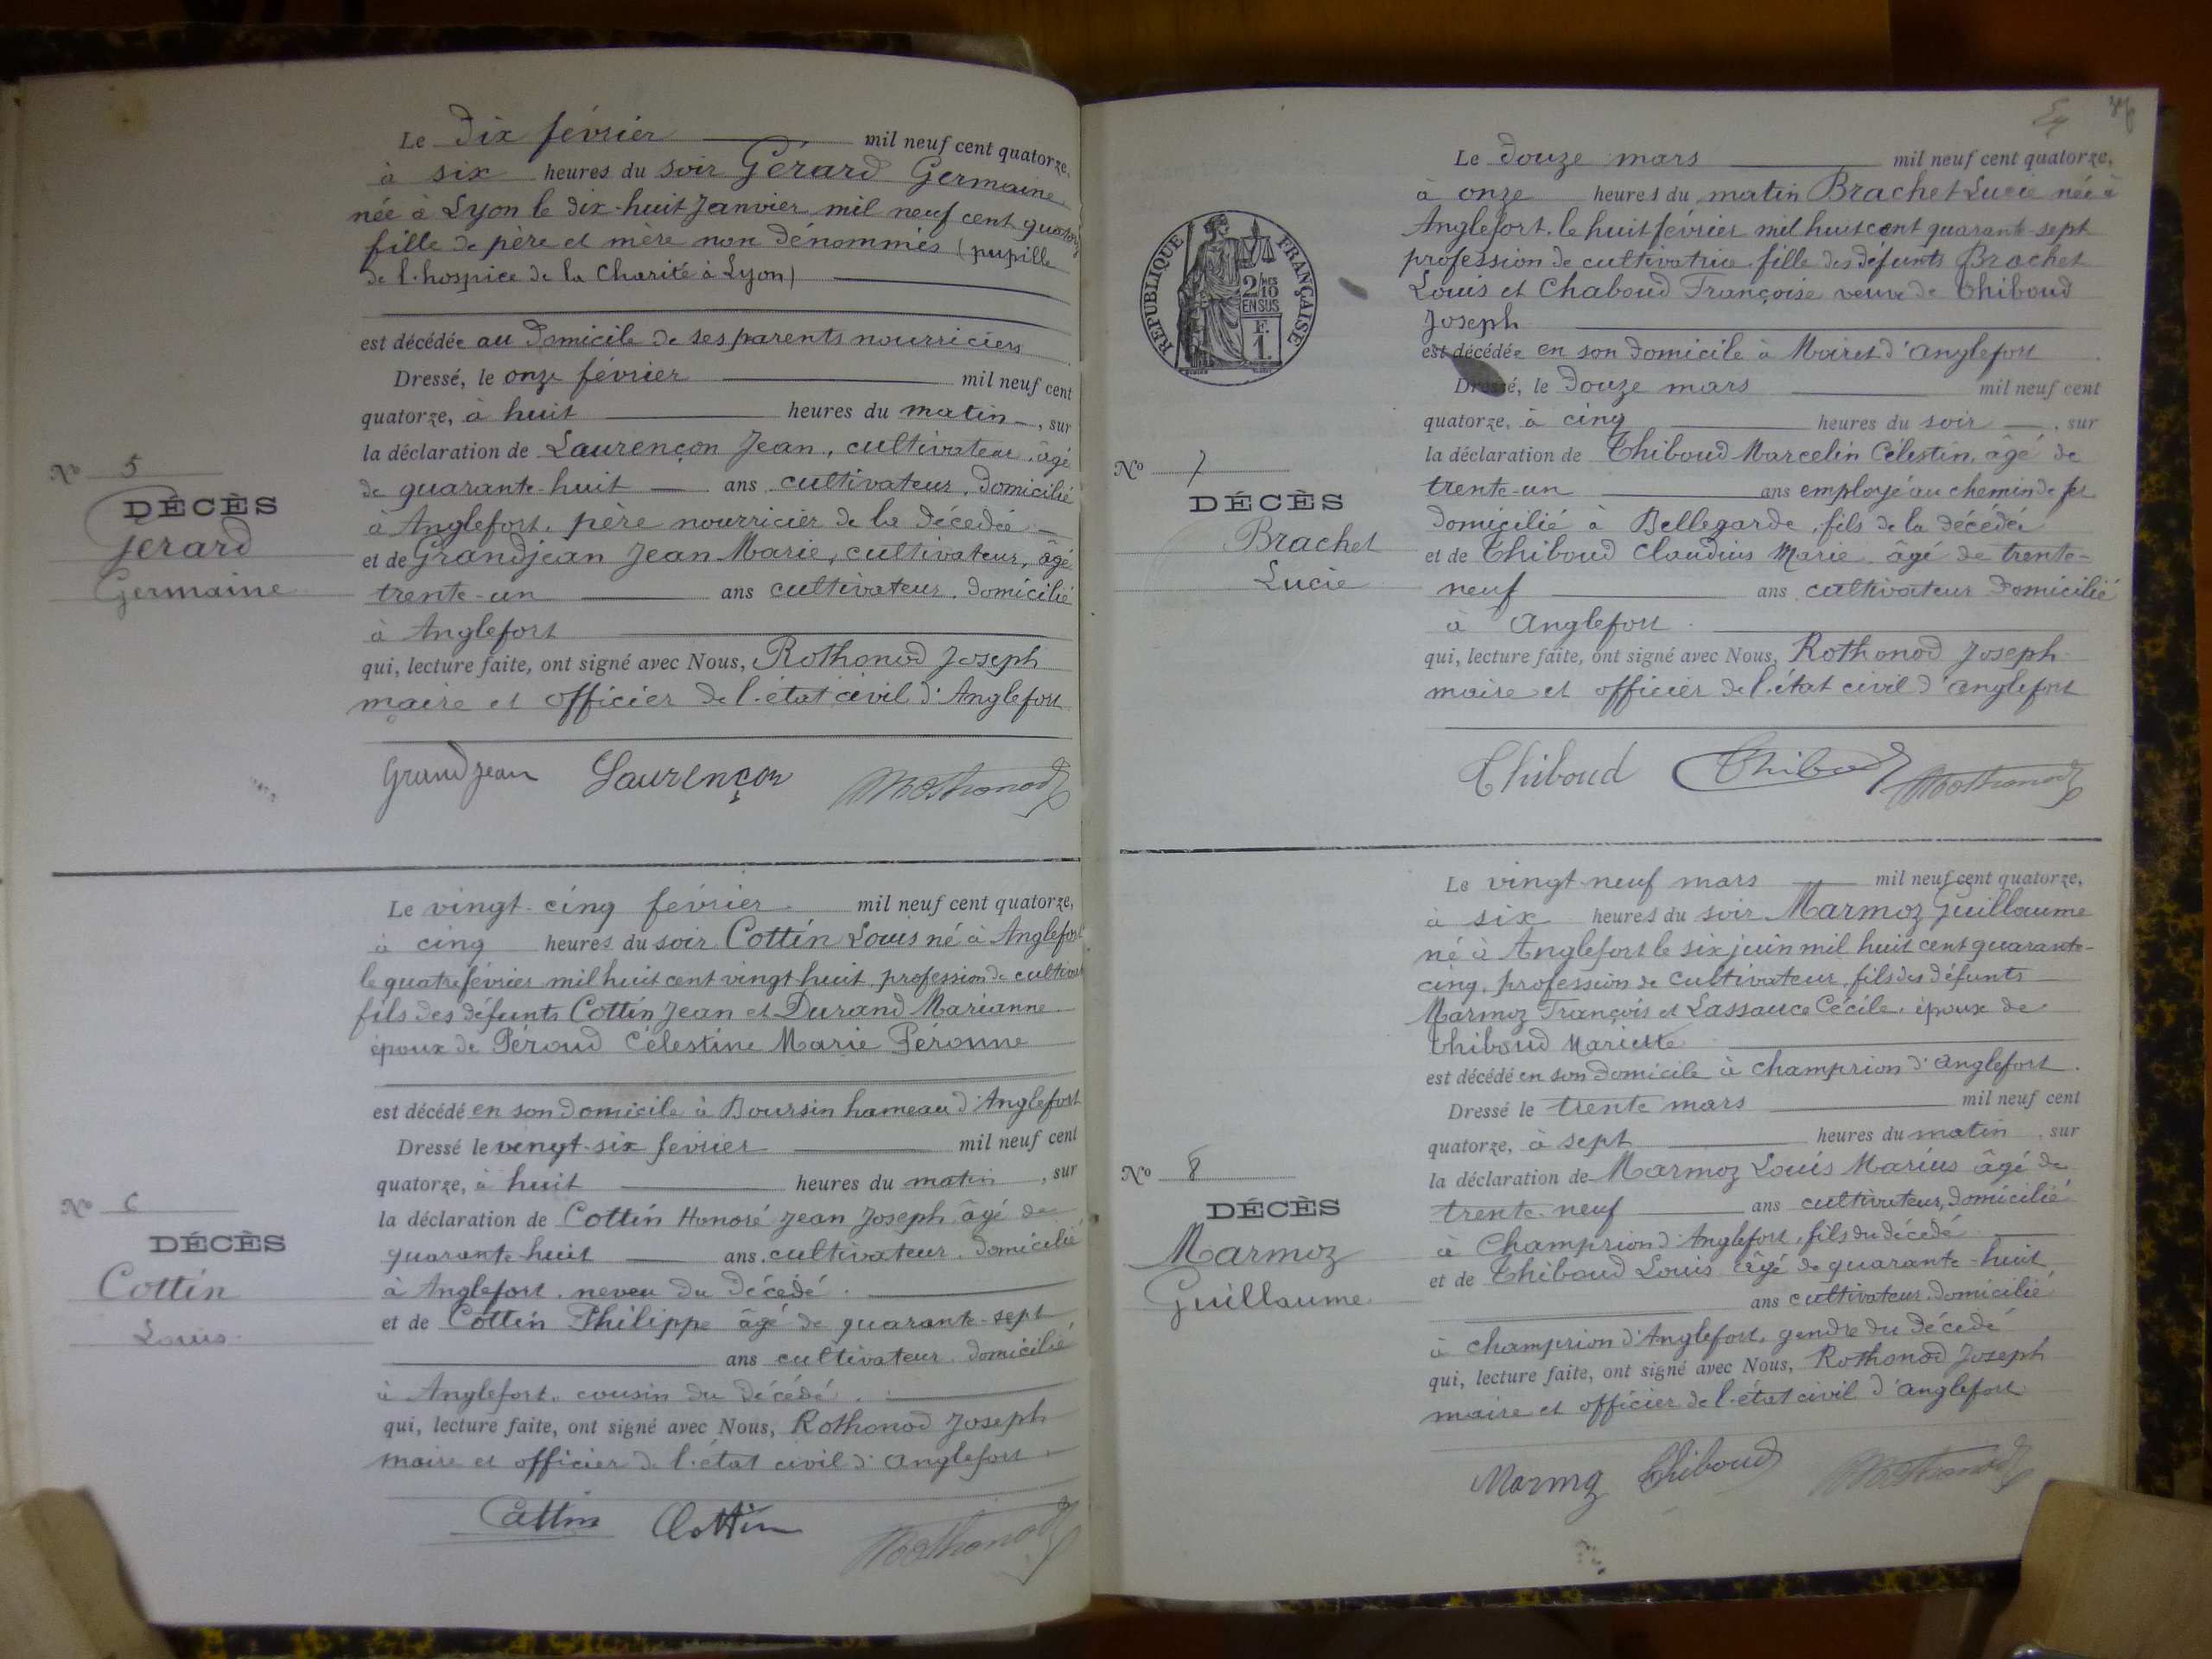 Le dix février mil neuf cent quatorze,
à six heures du soir Gérard Germaine
née à Lyon le dix-huit Janvier mil neuf cent quatorze
fille de père et mère non dénommés (pupille
de l'hospice de la Charité à Lyon)
est décédée au domicile de ses parents nourriciers
Dressé, le onze février mil neuf cent
quatorze, à huit heures du matin, sur
la déclaration de Laurençon Jean, cultivateur, âgé
de quarante-huit ans, cultivateur, domicilié
à Anglefort, père nourricier de la décédée
et de Grandjean Jean Marie, cultivateur, âgé
trente-un ans cultivateur, domicilié
à Anglefort
qui, lecture faite, ont signé avec Nous, Rothonod Joseph
maire et officier de l'état civil d'Anglefort
Grandjean Laurençon Rothonod
No 5
DÉCÈS
Gérard
Germaine
Le vingt-cinq février mil neuf cent quatorze,
à cinq heures du soir Cottin Louis né à Anglefort
le quatre février mil huit cent vingt huit, profession de cultivat
fils des défunts Cottin Jean et Durand Marianne
époux de Péroud Célestine Marie Péronne
est décédé en son domicile à Boursin hameau d'Anglefort
Dressé le vingt-six février mil neuf cent
quatorze, à huit heures du matin, sur
la déclaration de Cottin Honoré Jean Joseph âgé de
quarante-huit ans, cultivateur, domicilié
à Anglefort, neveu du décédé.
et de Cottin Philippe âgé de quarante-sept
ans cultivateur domicilié
à Anglefort, cousin du décédé.
qui, lecture faite, ont signé avec Nous, Rothonod Joseph
maire et officier de l'état civil d'Anglefort
Cottin Cottin Rothonod
No 6
DÉCÈS
Cottin
Louis
REPUBLIQUE FRANÇAISE
2/10 EN SUS
F. 1.
Le douze mars mil neuf cent quatorze,
à onze heures du matin Brachet Lucie née à
Anglefort, le huit février mil huit cent quarante-sept
profession de cultivatrice, fille des défunts Brachet
Louis et Chaboud Françoise veuve de Thiboud
Joseph
est décédée en son domicile à Moiret d'Anglefort
Dressé, le douze mars mil neuf cent
quatorze, à cinq heures du soir, sur
la déclaration de Thiboud Marcelin Célestin, âgé de
trente-un ans employé au chemin de fer
domicilié à Bellegarde, fils de la décédée
et de Thiboud Claudius Marie âgé de trente-
neuf ans, cultivateur domicilié
à Anglefort.
qui, lecture faite, ont signé avec Nous, Rothonod Joseph
maire et officier de l'état civil d'Anglefort
Thiboud Thiboud Rothonod
No 7
DÉCÈS
Brachet
Lucie
Le vingt-neuf mars mil neuf cent quatorze,
à six heures du soir Marmoz Guillaume
né à Anglefort le six juin mil huit cent quarante-
cinq, profession de cultivateur, fils des défunts
Marmoz François et Lassauce Cécile, époux de
Thiboud Mariette
est décédé en son domicile à Champrion d'Anglefort.
Dressé le trente mars mil neuf cent
quatorze, à sept heures du matin, sur
la déclaration de Marmoz Louis Marius âgé de
trente-neuf ans cultivateur, domicilié
à Champrion d'Anglefort, fils du décédé
et de Thiboud Louis âgé de quarante-huit
ans cultivateur domicilié
à Champrion d'Anglefort, gendre du décédé
qui, lecture faite, ont signé avec Nous, Rothonod Joseph
maire et officier de l'état civil d'Anglefort
Marmoz Thiboud Rothonod
No 8
DÉCÈS
Marmoz
Guillaume